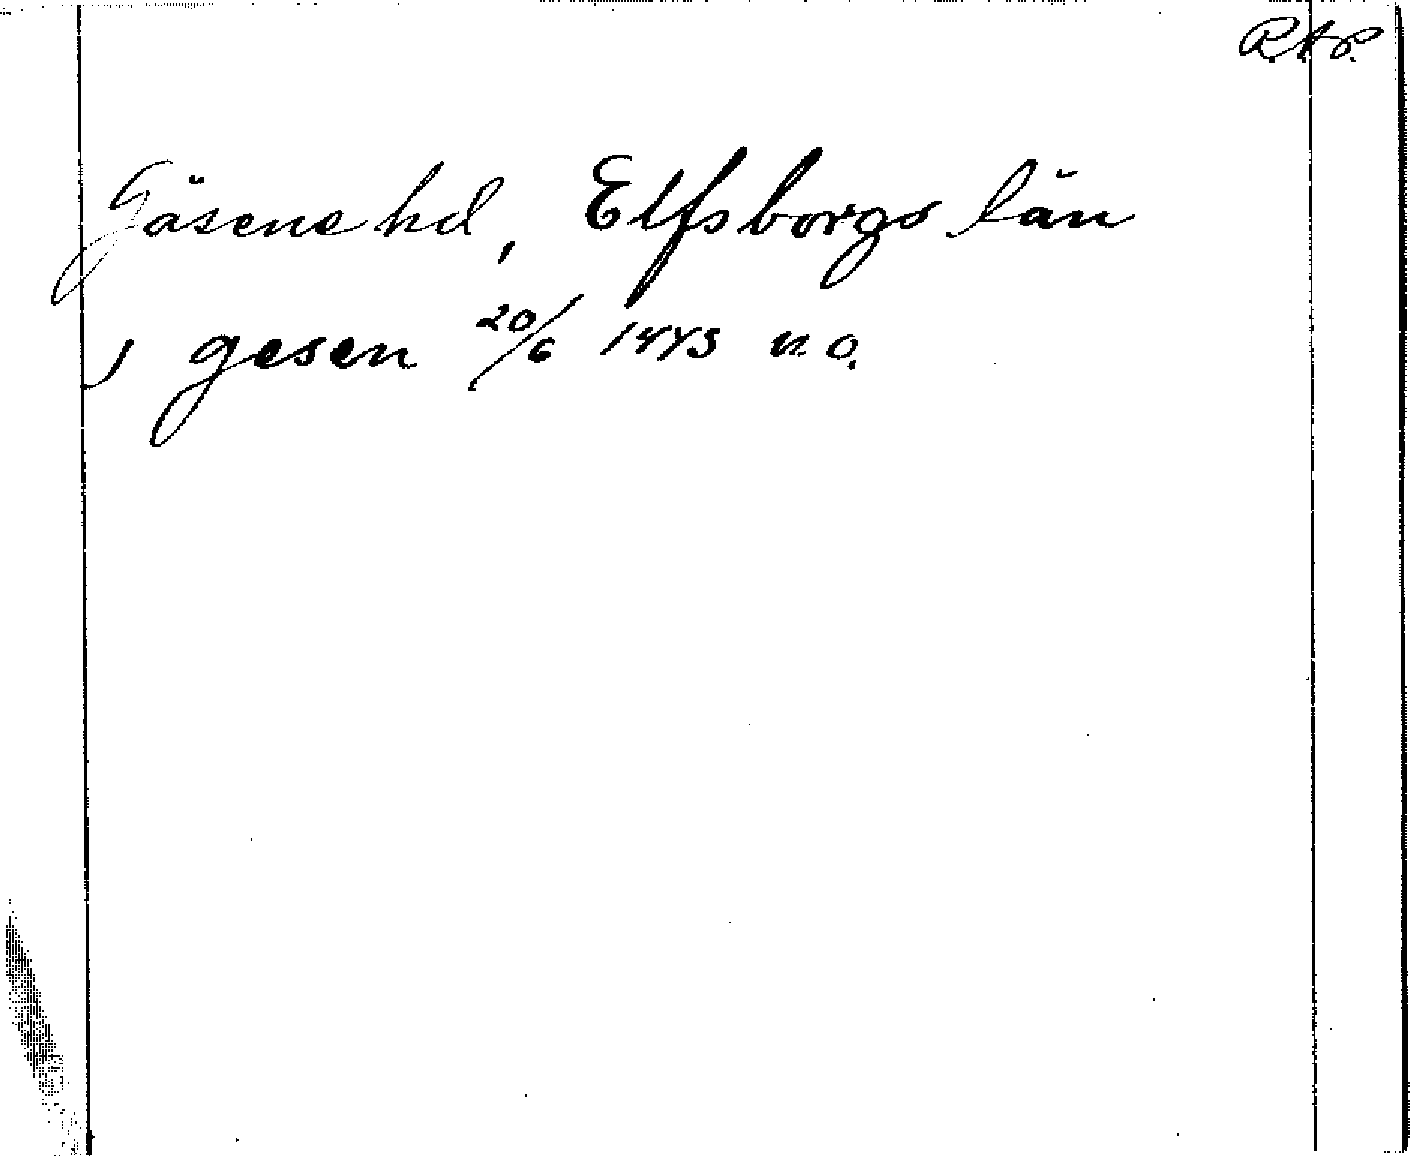 R.A.P.
Gäsene hd, Elfsborgs län
J gesen 20/6 1443 n.o.